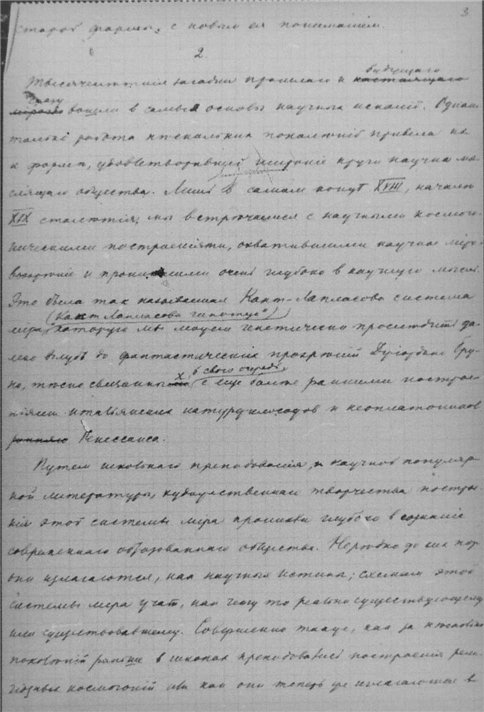 3
старой формы, с новым ея пониманием.
2.
Тысячелетния загадки прошлаго и настоящаго
будущаго
сразу вошли в самыя основы научных исканий. Однако
только работа нескольких поколений привела их
к форме, удовлетворявшей широкие круги научно мы
слящаго общества. Лишь в самом конце XVIII, начале
XIX столетия, мы встречаемся с научными космого-
ническими построениями, охватившими научное миро-
воззрение и проникшими очень глубоко в научную мысль.
Это была так называемая Кант-Лапласова система
мира (Кант-Лапласова гипотеза)
которую мы можем генетически проследить да-
леко вглубь до фантастических прозрений Джиордано Бру-
но, тесно связанных в свою очередь с еще более ранними построе-
ниями итальянских натурфилософов и неоплатоников
Ренессанса.
Путем школьнаго преподавания, научной популяр-
ной литературы, художественнаго творчества построе-
ния этой системы мира проникли глубоко в сознание
современнаго образованнаго общества. Нередко до сих пор
они излагаются, как научныя истины; схемам этой
системы мира учат, как чему то реально существующему
или существовавшему. Совершенно также, как за несколько
поколений раньше в школах преподавались построения рели-
гиозных космогоний или как они теперь еще излагаются в